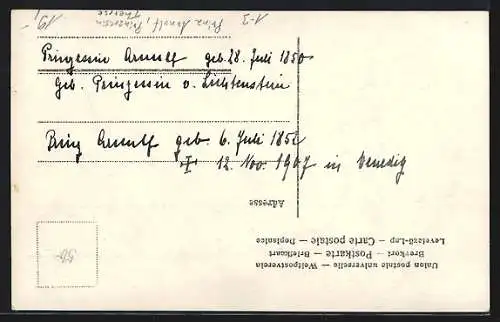 Prinzessin Arnulf geb. 28. Juli 1850
Geb. Prinzessin v. Lichtenstein
Prinz Arnulf geb. 6. Juli 1852
12. Nov. 1907 in Venedig
Prinz Arnulf, Prinzessin
Therese
Adresse
Union postale universelle — Weltpostverein
Brevkort — Postkarte — Briefkaart
Levelező-Lap — Carte postale — Dopisnice